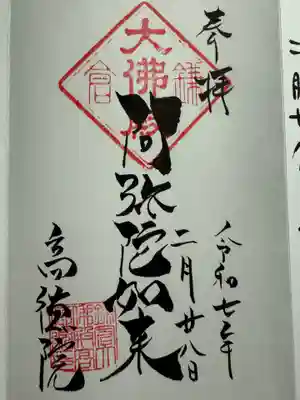 奉拝
令和七年
二月廿八日
大佛殿
鎌倉
阿弥陀如来
高徳院